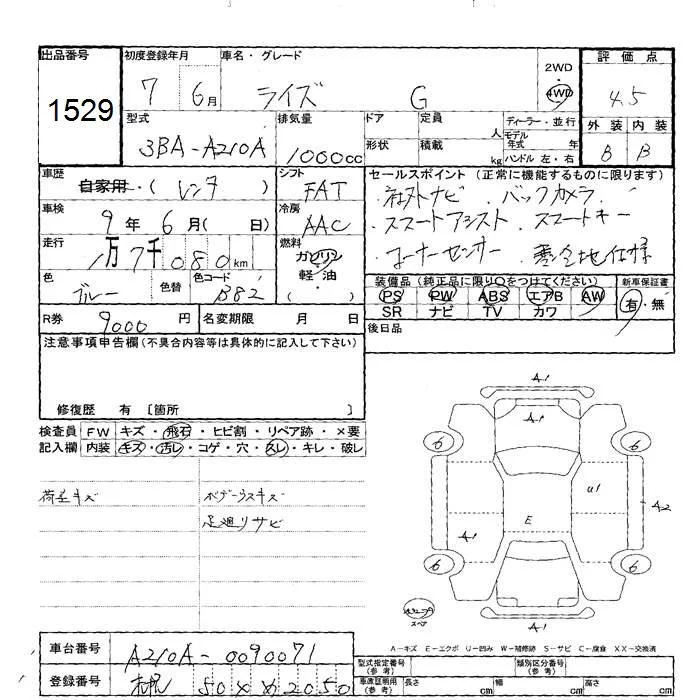 出品番号
1529
初度登録年月
7 6月
車名・グレード
ライズ G
2WD
・
4WD
評価点
4.5
外装 内装
B B
型式
3BA-A210A
排気量
1000cc
ドア
定員
人
形状
積載
kg
ディーラー・並行
モデル年式 年
ハンドル 左・右
車歴
自家用・(レンタ)
シフト
FAT
セールスポイント (正常に機能するものに限ります)
・社外ナビ ・バックカメラ
・スマートアシスト ・スマートキー
・コーナーセンサー ・寒冷地仕様
車検
9年 6月( 日)
冷房
AAC
走行
1万7千080km
燃料
ガソリン
軽・油
( )
色
ブルー
色替
色コード
B82
装備品 (純正品に限り○をつけてください)
PS PW ABS エアB AW
SR ナビ TV カワ
新車保証書
有・無
R券
9000円
名変期限 月 日
後日品
注意事項申告欄(不具合内容等は具体的に記入して下さい)
修復歴 有 〔箇所 〕
検査員 FW キズ・飛石・ヒビ割・リペア跡・×要
記入欄 内装 キズ・汚レ・コゲ・穴・スレ・キレ・破レ
荷室キズ
ボデーうスキズ
足廻リサビ
A1
A1
6
6
U1
A2
E
A1
6
6
スペア
A1
A-キズ E-エクボ U-凹み W-補修跡 S-サビ C-腐食 XX-交換済
車台番号
A210A-0090071
登録番号
札幌 50
2050
型式指定番号
(参考)
類別区分番号
(参考)
車庫証明用
(参考)
長さ cm
幅 cm
高さ cm